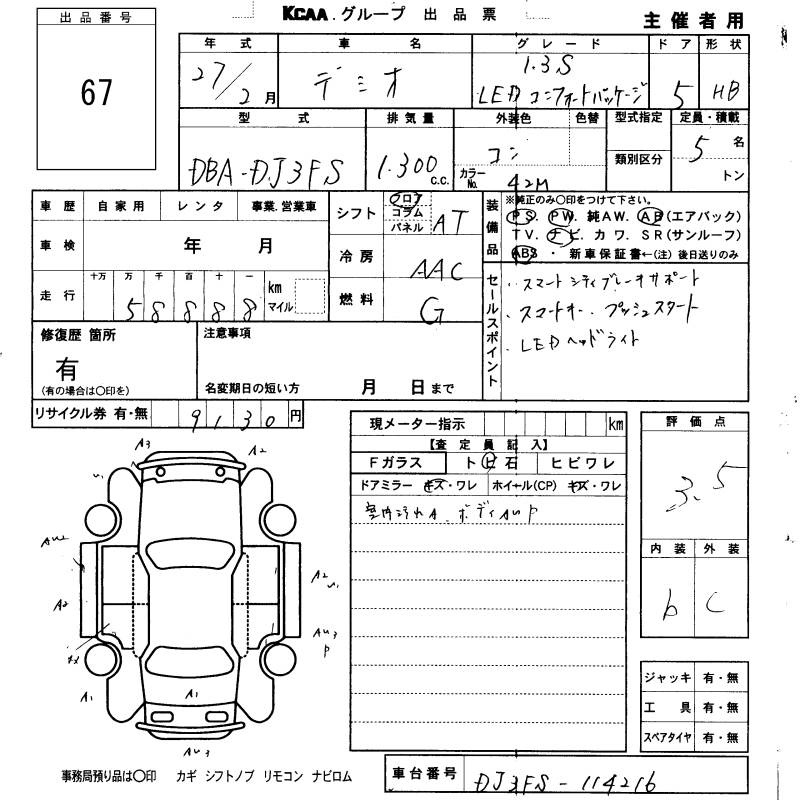 出品番号
67
KCAA.グループ 出品票
主催者用
年式 車名 グレード ドア 形状
27/2月 デミオ 1.3S
LEDコンフォートパッケージ 5 HB
型式 排気量 外装色 色替 型式指定 定員・積載
DBA-DJ3FS 1.300 c.c. コン 類別区分 5名
カラーNo. 42M トン
車歴 自家用 レンタ 事業.営業車
車検 年 月
走行 十万 万 千 百 十 一
58888 km マイル
シフト フロア コラム パネル AT
冷房 AAC
燃料 G
装備品 ※純正のみ〇印をつけて下さい。
PS. PW. 純AW. AB(エアバック)
TV. ナビ. カワ. SR(サンルーフ)
ABS ・ 新車保証書←(注)後日送りのみ
セールスポイント
・スマートシティブレーキサポート
・スマートキー プッシュスタート
・LEDヘッドライト
修復歴 箇所
有
(有の場合は〇印を)
注意事項
名変期日の短い方 月 日まで
リサイクル券 有・無 9130円
現メーター指示 km
【査定員記入】
Fガラス トビ石 ヒビワレ
ドアミラー キズ・ワレ ホイール(CP) キズ・ワレ
室内汚れA ボディAUP
評価点
3.5
内装 外装
b C
ジャッキ 有・無
工具 有・無
スペアタイヤ 有・無
A3
A2
U1
AU2
A2
U1
A2
AU3
P
A1
A1
AU3
事務局預り品は〇印 カギ シフトノブ リモコン ナビロム
車台番号 DJ3FS-114216